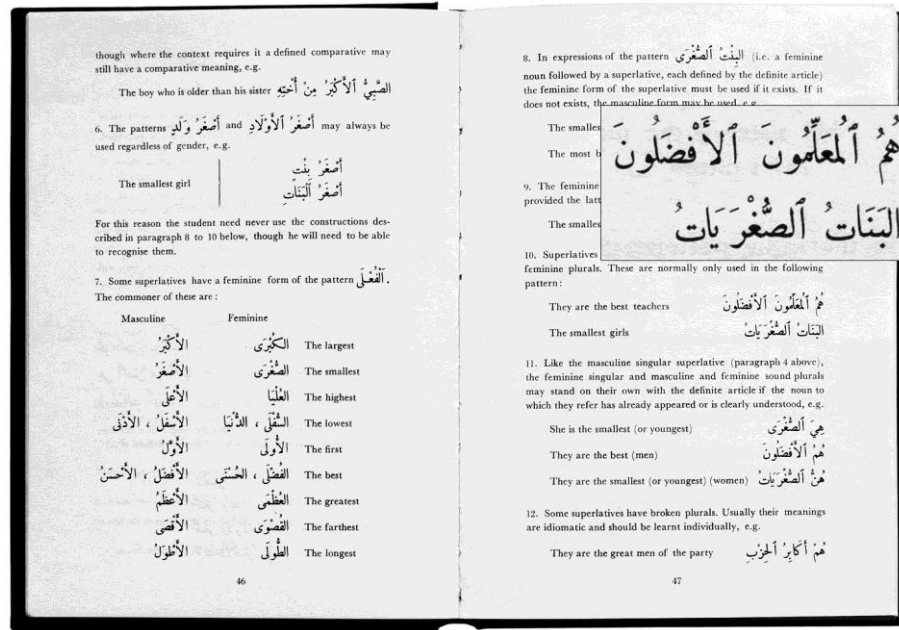 though where the context requires it a defined comparative may
still have a comparative meaning, e.g.
The boy who is older than his sister الصَّبِيُّ ٱلْأَكْبَرُ مِنْ أُخْتِهِ
6. The patterns أَصْغَرُ وَلَدٍ and أَصْغَرُ ٱلْأَوْلَادِ may always be
used regardless of gender, e.g.
The smallest girl
أَصْغَرُ بِنْتٍ
أَصْغَرُ ٱلْبَنَاتِ
For this reason the student need never use the constructions des-
cribed in paragraph 8 to 10 below, though he will need to be able
to recognise them.
7. Some superlatives have a feminine form of the pattern ٱلْفُعْلَى.
The commoner of these are :
Masculine Feminine
الأَكْبَرُ الكُبْرَى The largest
الأَصْغَرُ الصُّغْرَى The smallest
الأَعْلَى العُلْيَا The highest
الأَسْفَلُ ، الأَدْنَى السُّفْلَى ، الدُّنْيَا The lowest
الأَوَّلُ الأُولَى The first
الأَفْضَلُ ، الأَحْسَنُ الفُضْلَى ، الحُسْنَى The best
الأَعْظَمُ العُظْمَى The greatest
الأَقْصَى القُصْوَى The farthest
الأَطْوَلُ الطُّولَى The longest
46
8. In expressions of the pattern البِنْتُ ٱلصُّغْرَى (i.e. a feminine
noun followed by a superlative, each defined by the definite article)
the feminine form of the superlative must be used if it exists. If it
does not exists, the masculine form may be used, e.g.
The smalles
The most b
هُمُ ٱلْمُعَلِّمُونَ ٱلْأَفْضَلُونَ
البَنَاتُ ٱلصُّغْرَيَاتُ
9. The feminine
provided the latt
The smalles
10. Superlatives
feminine plurals. These are normally only used in the following
pattern :
They are the best teachers هُمُ ٱلْمُعَلِّمُونَ ٱلْأَفْضَلُونَ
The smallest girls البَنَاتُ ٱلصُّغْرَيَاتُ
11. Like the masculine singular superlative (paragraph 4 above),
the feminine singular and masculine and feminine sound plurals
may stand on their own with the definite article if the noun to
which they refer has already appeared or is clearly understood, e.g.
She is the smallest (or youngest) هِيَ ٱلصُّغْرَى
They are the best (men) هُمُ ٱلْأَفْضَلُونَ
They are the smallest (or youngest) (women) هُنَّ ٱلصُّغْرَيَاتُ
12. Some superlatives have broken plurals. Usually their meanings
are idiomatic and should be learnt individually, e.g.
They are the great men of the party هُمْ أَكَابِرُ ٱلْحِزْبِ
47